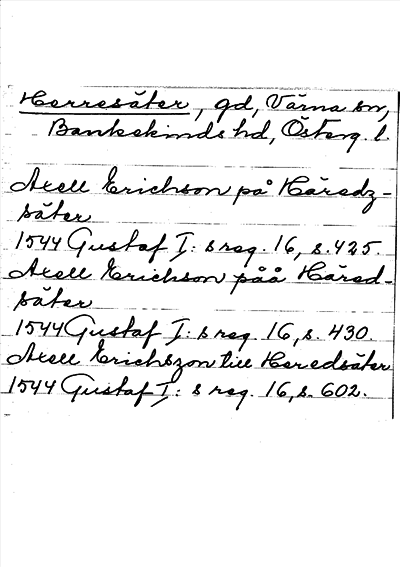 Herresäter, gd, Värna sn,
Bankekinds hd, Österg. l.
Axell Erichson på Häredz-
säter
1544 Gustaf I: s reg. 16, s. 425.
Axell Erichson påå Häred-
säter
1544 Gustaf I: s reg. 16, s. 430.
Axell Erichszon till Heredsäter
1544 Gustaf I: s reg. 16, s. 602.